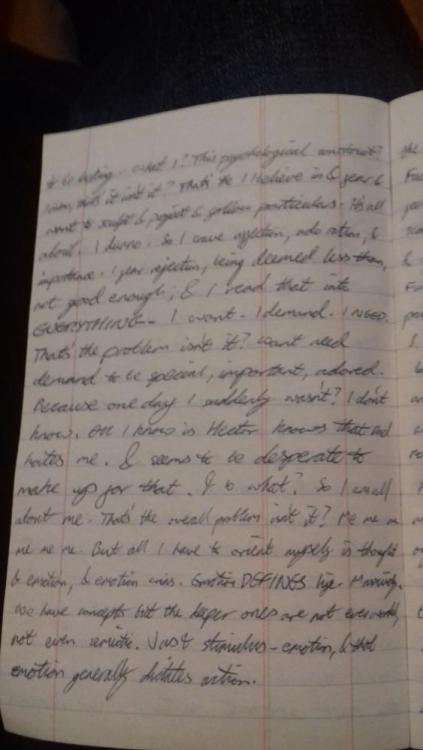 to be loving - what I? This psychological construct?
that's it isn't it? That's the I I believe in & fear &
want to sculpt & project & particulars - it's all
about. I dunno. So I crave affection, adoration, &
importance. I fear rejection, being deemed less than,
not good enough; & I read that into
EVERYTHING - I want - I demand. I NEED.
That's the problem isn't it? want need
demand to be special, important, adored.
Because one day I suddenly wasn't? I don't
know. All I know is Hector knows that and
hates me. & seems to be desperate to
make up for that. & is what? So I am all
about me. That's the overall problem isn't it? Me me m
me me me. But all I have to orient myself is thought
& emotion, & emotion wins. Emotion DEFINES life. Massively.
we have concepts but the deeper ones are not even
not even semiotic. Just stimulus - emotion, & that
emotion generally dictates action.